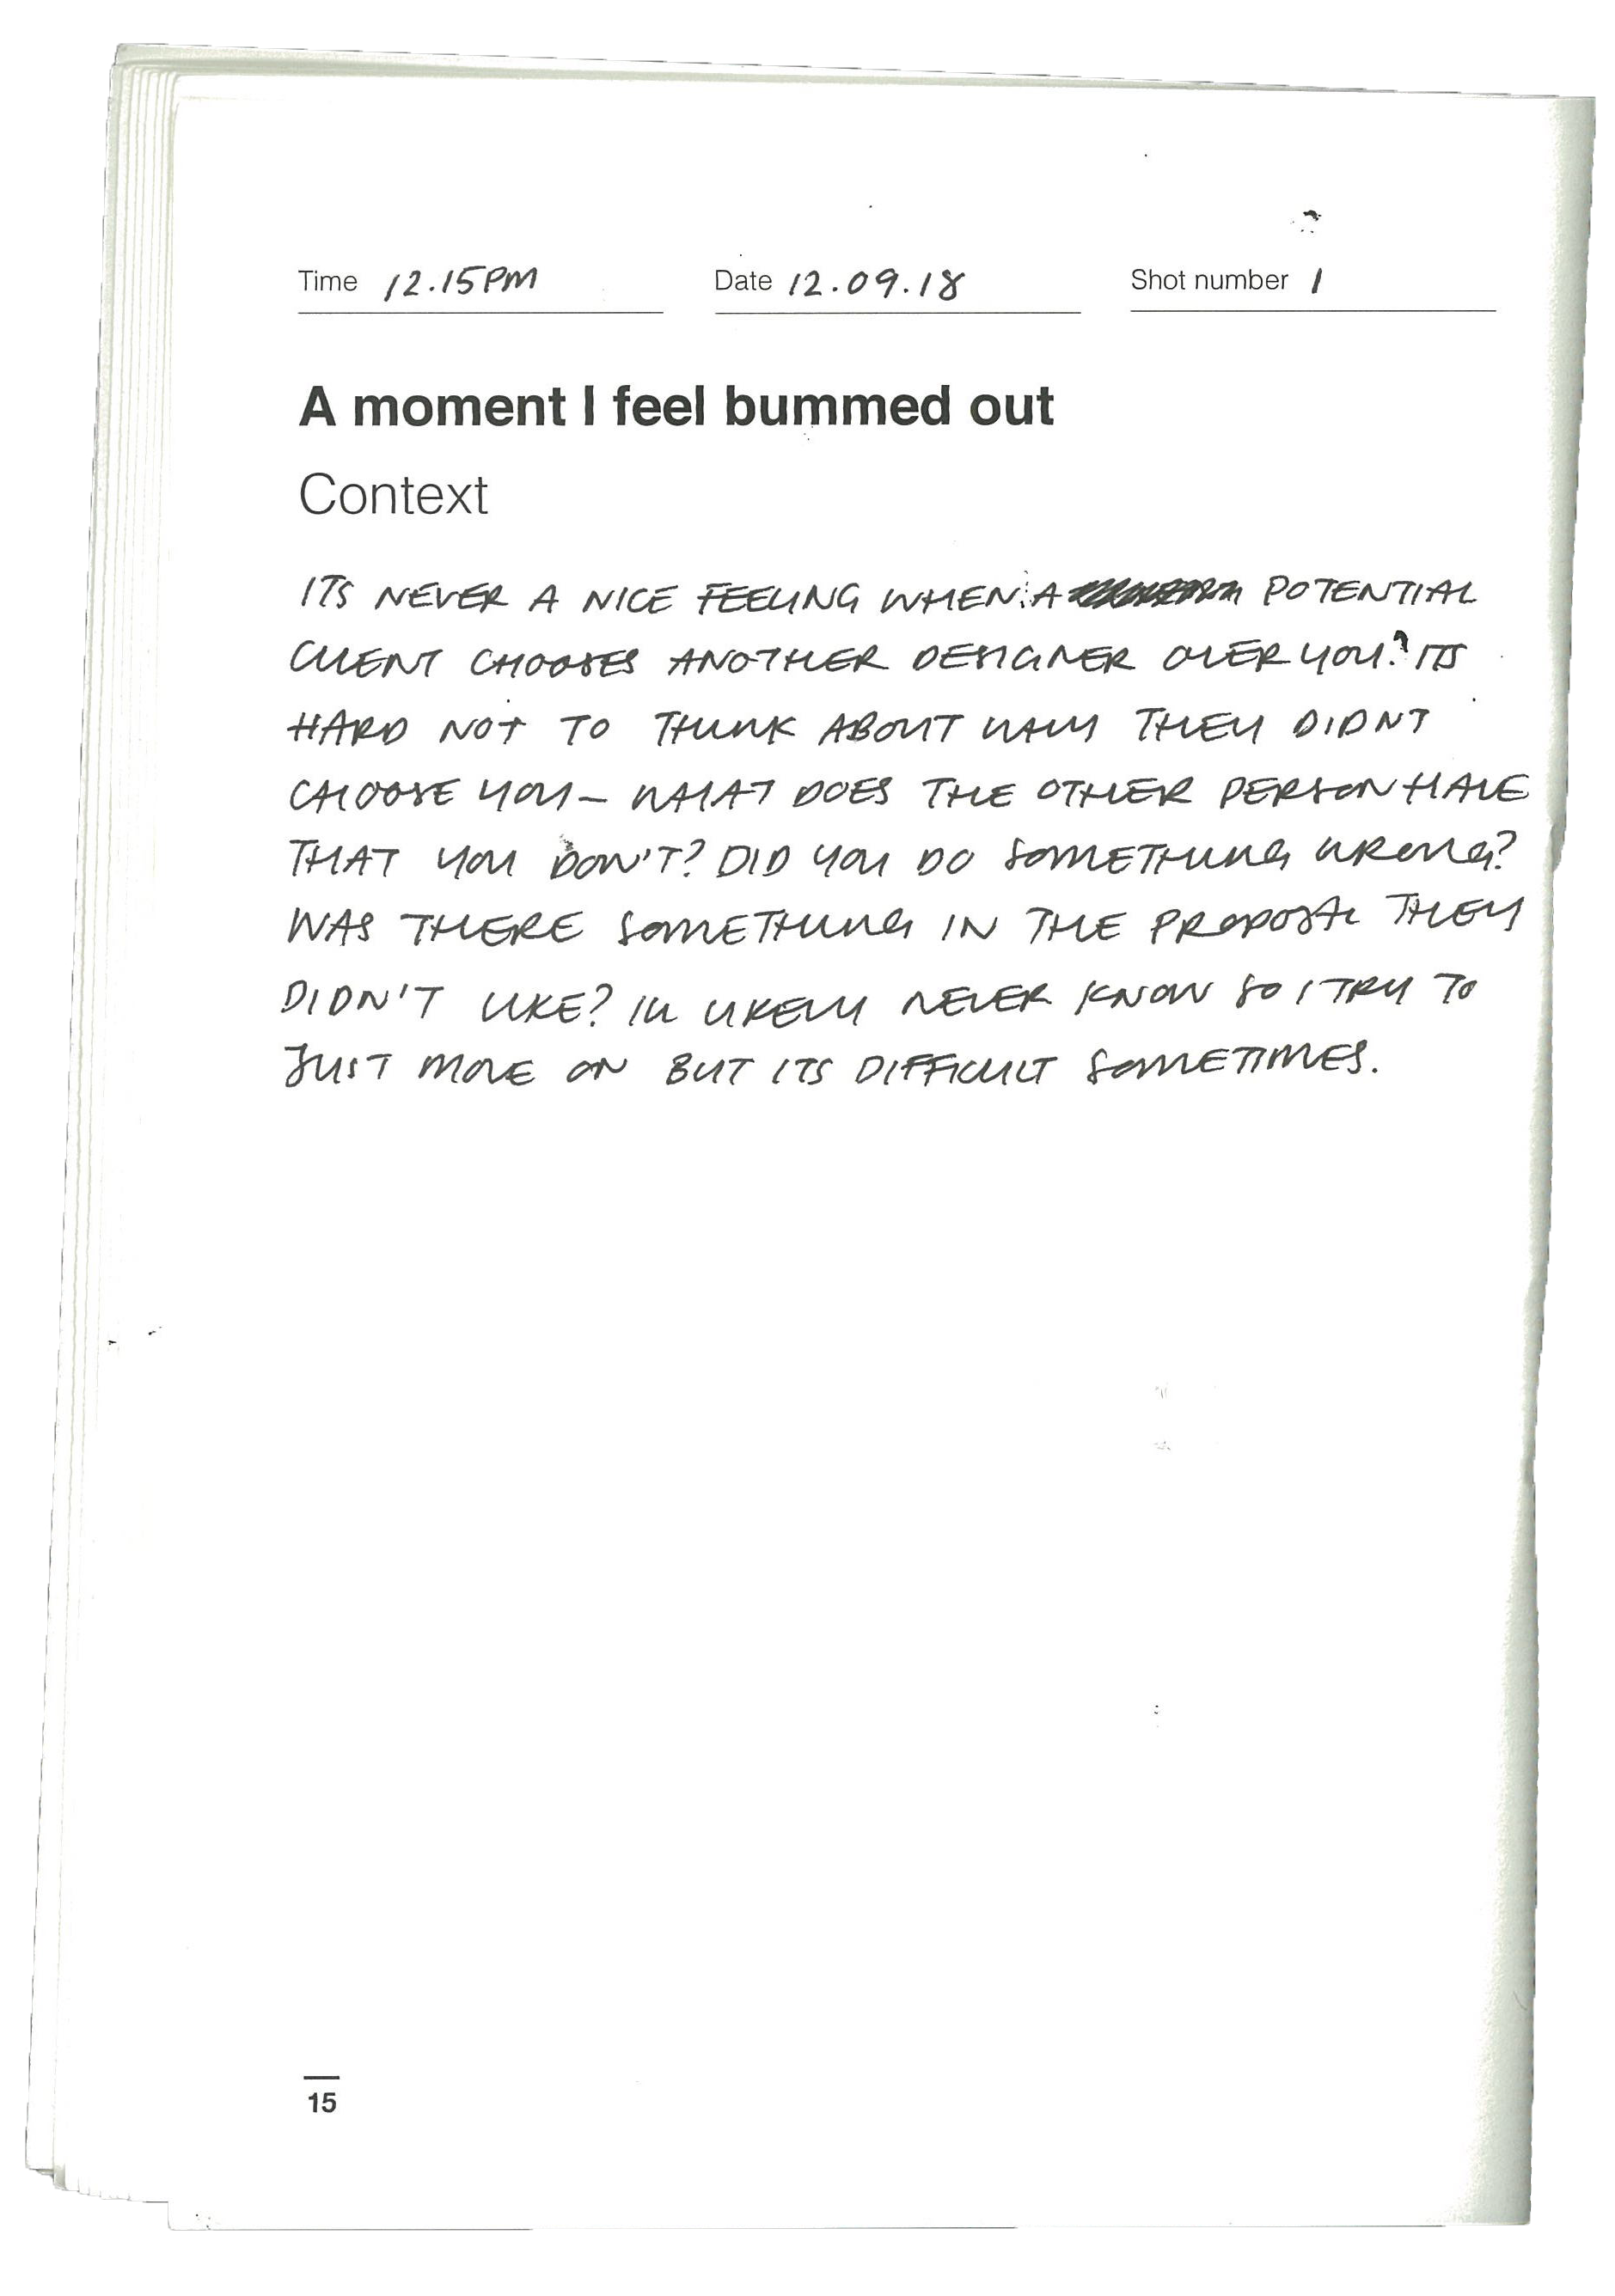 Time 12.15PM Date 12.09.18 Shot number 1
A moment I feel bummed out
Context
ITS NEVER A NICE FEELING WHEN A POTENTIAL
CLIENT CHOOSES ANOTHER DESIGNER OVER YOU. ITS
HARD NOT TO THINK ABOUT WHY THEY DIDNT
CHOOSE YOU - WHAT DOES THE OTHER PERSON HAVE
THAT YOU DON'T? DID YOU DO SOMETHING WRONG?
WAS THERE SOMETHING IN THE PROPOSAL THEY
DIDN'T LIKE? ILL LIKELY NEVER KNOW SO I TRY TO
JUST MOVE ON BUT ITS DIFFICULT SOMETIMES.
15